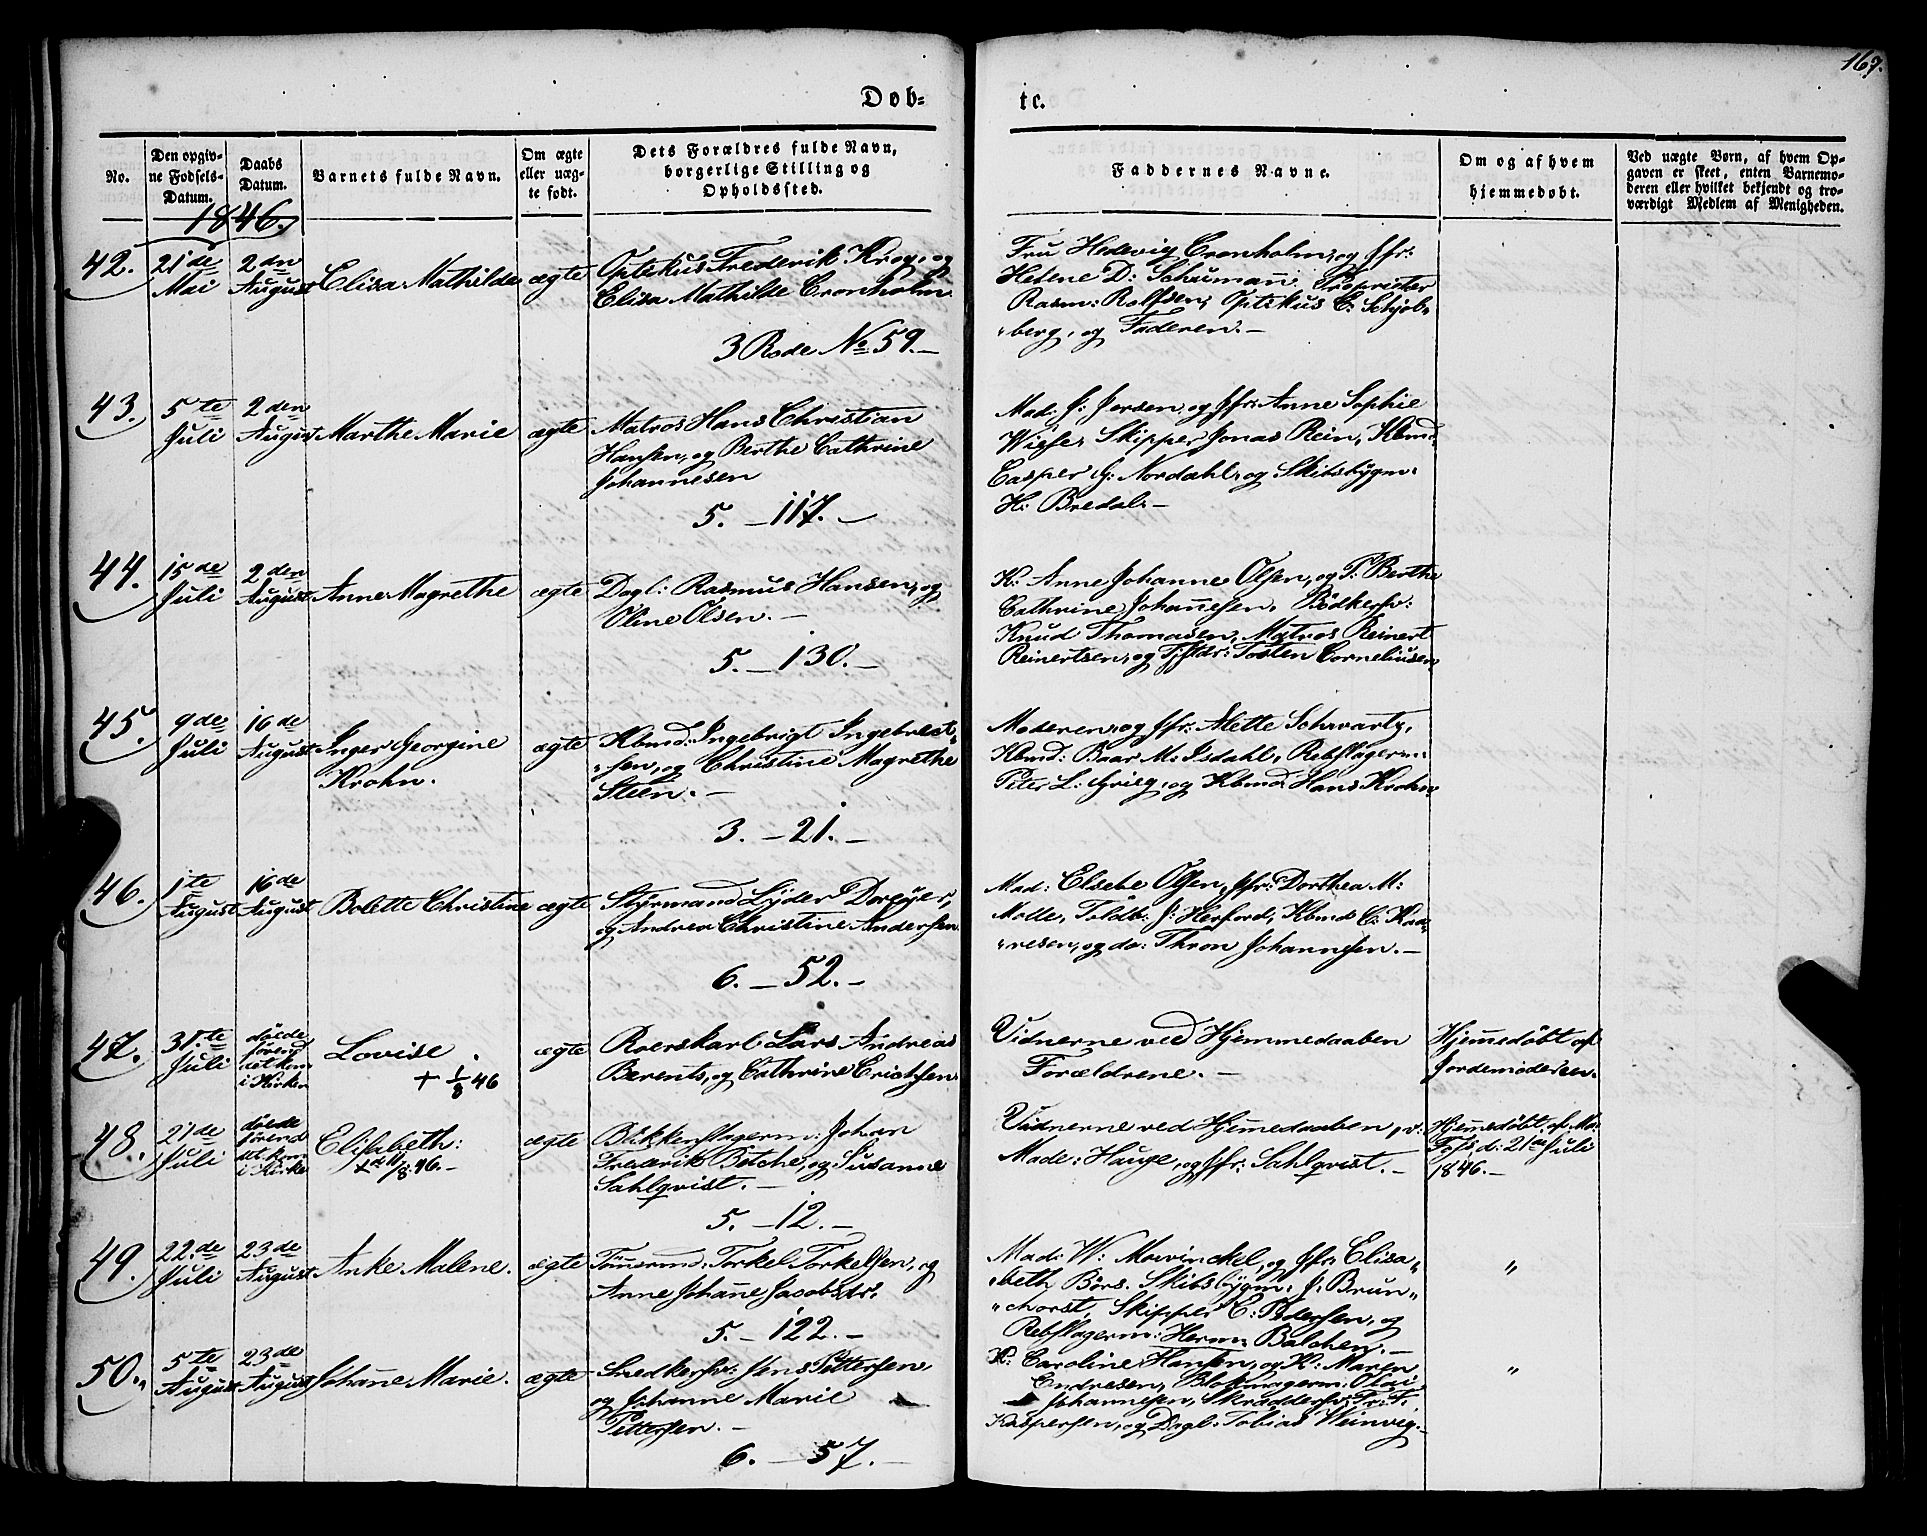 167.
Døb-
te.
No.
Den opgiv-
ne Fødsels-
Datum.
Daabs
Datum.
Barnets fulde Navn.
Om ægte
eller uæg-
te født.
Dets Forældres fulde Navn,
borgerlige Stilling og
Opholdssted.
Faddernes Navne.
Om og af hvem
hjemmedøbt.
Ved uægte Børn, af hvem Op-
gaven er skeet, enten Barnemo-
deren eller hvilket bekjendt og tro-
værdigt Medlem af Menigheden.
1846.
42.
21de
Mai
2den
August
Elisa Mathilde
ægte
Optikus Frederik Krog, og
Elisa Mathilde Cronholm
3 Rode No 59.
Fru Hedevig Cronholm, og Jfr:
Helene D: Schumann. Proprietær
Rasm: Rolfsen, Optikus C: Schjøt-
berg, og Faderen.
43.
5te
Juli
2den
August
Marthe Marie
ægte
Matros Hans Christian
Hansen, og Berthe Cathrine
Johannesen
5. - 117.
Mad: J: Jersen, og Jfr: Anne Sophie
Wiese, Skipper Jonas Rein, Kbmd
Casper G: Nordahl, og Skibsbygm:
H: Bredal.
44.
15de
Juli
2den
August
Anne Magrethe
ægte
Dagl: Rasmus Hansen, og
Oline Olsen.
5. - 130.
K: Anne Johanne Olsen, og P: Berthe
Cathrine Johannesen, Bødkersv:
Knud Thomasen, Matros Reinert
Reinertsen, og Tjstdr: Tosten Corneliusen
45.
9de
Juli
16de
August
Inger Georgine
Krohn.
ægte
Kbmd: Ingebrigt Ingebrect-
sen, og Christine Magrethe
Steen.
3. - 21.
Moderen, og Jfr: Alette Schwartz,
Kbmd: Baar M: Isdahl, Rebslagerm:
Peter L: Grieg, og Kbmd Hans Krohn
46.
1te
August
16de
August
Bolette Christine
ægte
Styrmand Lyder Dreyer,
og Andrea Christine Andersen
6. - 52.
Mad: Elsebe Olsen, Jfr: Dorthea M:
Molle, Toldb: J: Herford, Kbmd C: Kaa-
resen, og do: Thron Johannesen.
47.
31te
Juli
døde
førend
det kom
i Kirken
Lovise
+ 1/8 46
ægte
Roerskarl Lars Andreas
Berents, og Cathrine Erichsen
Vidnerne ved Hjemmedaaben
Forældrene.
Hjemmedøbt af
Jordemoderen.
48.
21de
Juli
døde
førend
det kom
i Kirke
Elisabeth:
+ d 11/8 46.
ægte
Blikkenslagerm: Johan
Frederik Betche, og Susanne
Sahlqvist.
5. - 12.
Vidnerne ved Hjemmedaaben, v:
Made: Hauge, og Jfr: Sahlqvist.
Hjemmedøbt af
d: 21de Juli
1846.
49.
22de
Juli
23de
August
Anke Malene.
ægte
Tømermd: Torkel Torkelsen, og
Anne Johanne Jacobsdr:
5. - 122.
Mad: W: Mowinckel, og Jfr: Elisa-
beth Børs. Skibsbygm: J: Brun-
chorst, Skipper C: Pedersen, og
Rebslagerm: Herm: Balchen.
"
50.
5te
August
23de
August
Johanne Marie.
ægte
Snedkersv: Jens Pettersen
og Johanne Marie
Pettersen.
6. - 57.
K: Caroline Hansen, og K: Maren
Endresen, Blokmagerm: Olai
Johannesen, Skræddersv: Fr: F:
Kaspersen, og Dagl: Tobias Weinveg.
"